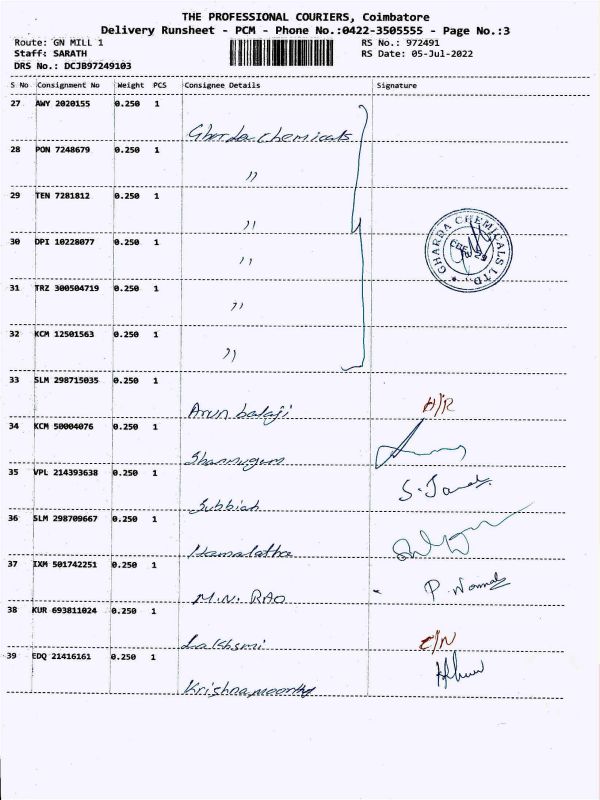 THE PROFESSIONAL COURIERS, Coimbatore
Delivery Runsheet - PCM - Phone No.:0422-3505555 - Page No.:3
Route: GN MILL 1 RS No.: 972491
Staff: SARATH RS Date: 05-Jul-2022
DRS No.: DCJB97249103
S No Consignment No Weight PCS Consignee Details Signature
27 AWY 2020155 0.250 1
Gharda chemicals
28 PON 7248679 0.250 1
"
29 TEN 7281812 0.250 1
"
GHARDA CHEMICALS LTD
30 DPI 10228077 0.250 1
"
31 TRZ 300504719 0.250 1
"
32 KCM 12501563 0.250 1
"
33 SLM 298715035 0.250 1
Arun balaji H/R
34 KCM 50004076 0.250 1
Shanmugam
35 VPL 214393638 0.250 1
Subbiah
36 SLM 298709667 0.250 1
Hamalatha
37 IXM 501742251 0.250 1
M.N. RAO
38 KUR 693811024 0.250 1
Lakhsmi C/N
39 EDQ 21416161 0.250 1
Krishnamoorthy